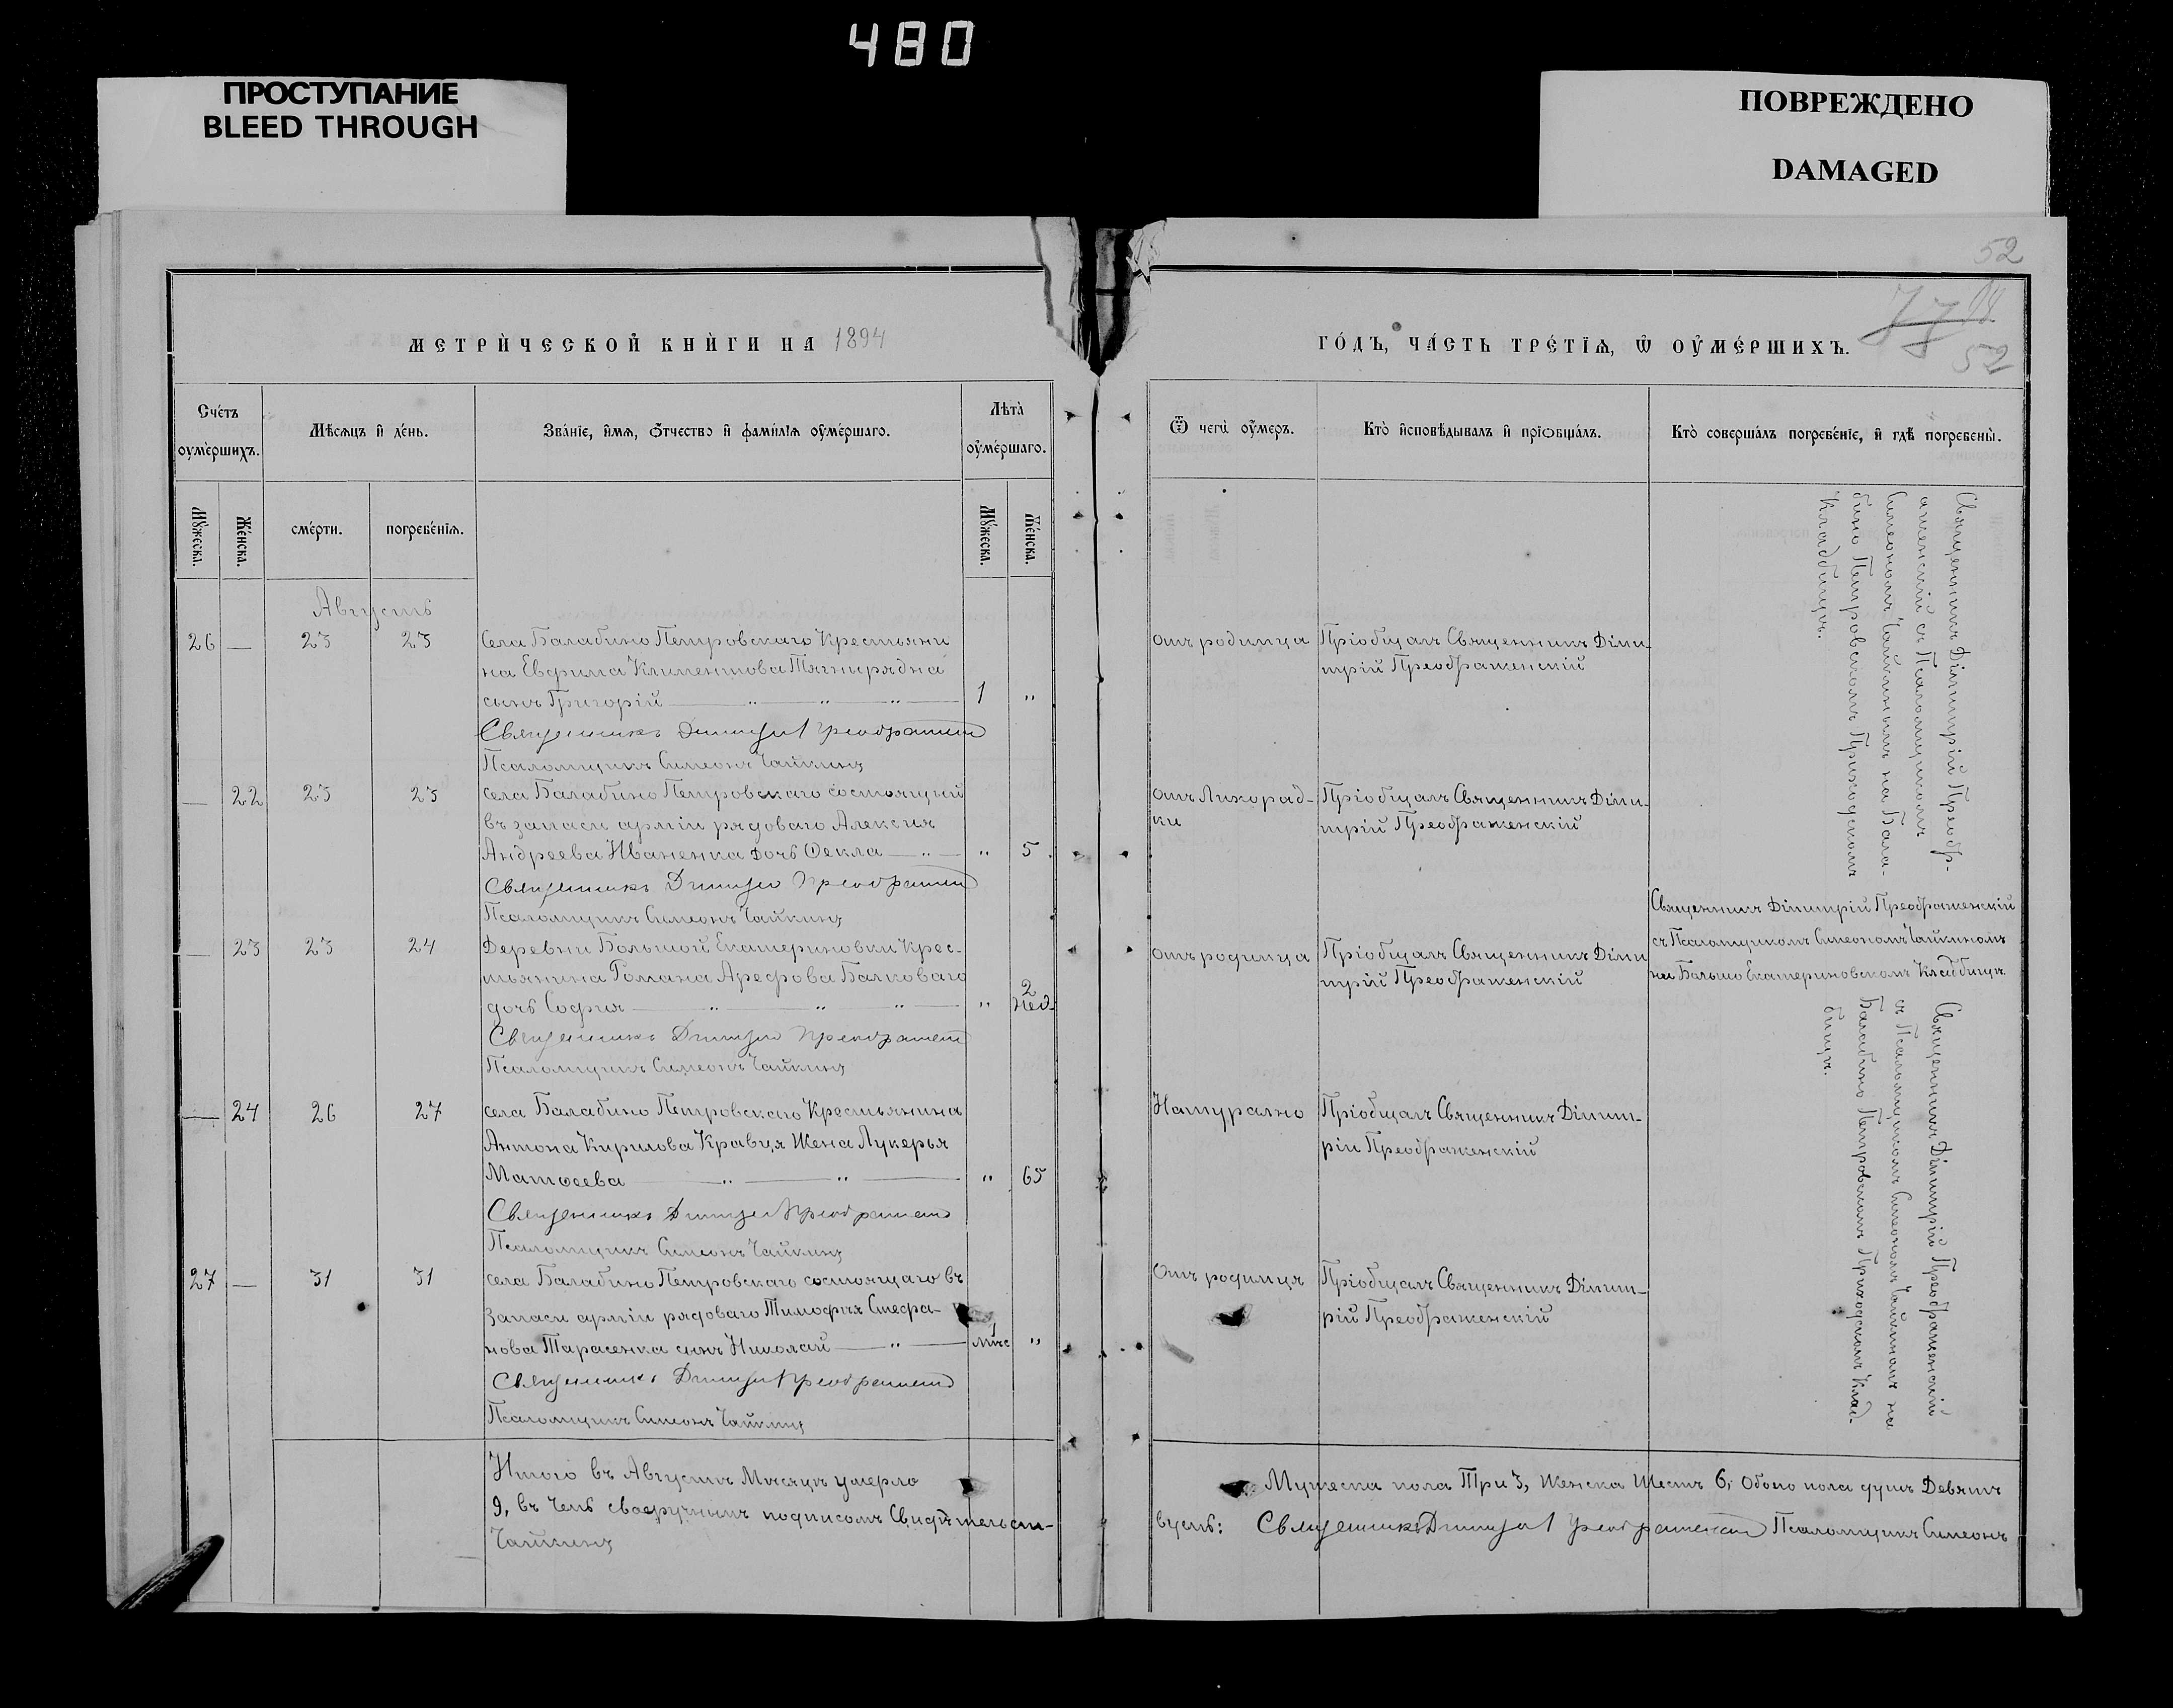 480
ПРОСТУПАНИЕ
BLEED THROUGH
ПОВРЕЖДЕНО
DAMAGED
52
52
МЕТРИ́ЧЕСКОЙ КНИ́ГИ НА 1894
ГО́ДЪ, ЧА́СТЬ ТРЕ́ТЇѦ, Ѿ ОУ҆МЕ́РШИХЪ.
Сче́тъ
оуме́ршихъ.
Мѣ́сѧцъ и҆ де́нь.
Зва́нїе, и҆́мѧ, ѻ҆́тчество и҆ фами́лїѧ оу҆ме́ршаго.
Лѣ́та
оу҆ме́ршаго.
Ѿ чегѡ̀ оу҆́меръ.
Кто̀ и҆сповѣ́дывалъ и҆ прїѡбща́лъ.
Кто̀ соверша́лъ погребе́нїе, и҆ гдѣ̀ погребены̀.
Мꙋ́жеска.
Же́нска.
сме́рти.
погребе́нїѧ.
Мꙋ́жеска.
Же́нска.
Августъ
26 — 23 23 Села Балабино Петровскаго Крестьяни
на Евфима Климентова Тягнирядна
сынъ Григорій — " — " — " — 1 "
Священникъ Димитрій Преображенс
Псаломщикъ Симеонъ Чайкинъ
отъ родимца
Пріобщалъ Священникъ Дими-
трій Преображенскій
Священникъ Дімитрій Преобр-
аженскій съ Псаломщикомъ
Симеономъ Чайкинымъ на Бала-
бино Петровскомъ Приходскомъ
Кладбищѣ.
— 22 23 23 села Балабино Петровскаго состоящій
въ запасѣ арміи рядоваго Алексія
Андреева Иваненка дочь Ѳекла — " — " 5
Священникъ Димитрій Преображенс
Псаломщикъ Симеонъ Чайкинъ
отъ Лихорад-
ки
Пріобщалъ Священникъ Діми-
трій Преображенскій
— 23 23 24 Деревни Большой Екатериновки Крес-
тьянина Романа Арефова Балковаго
дочь Софія — " — " — " — " 2 нед.
Священникъ Димитрій Преображенс
Псаломщикъ Симеонъ Чайкинъ
отъ родимца
Пріобщалъ Священникъ Діми
трій Преображенскій
Священникъ Дімитрій Преображенскій
съ Псаломщикомъ Симеономъ Чайкиномъ
на Больше Екатериновскомъ Кладбищѣ
— 24 26 27 села Балабино Петровскаго Крестьянина
Антона Кирилова Кравця Жена Лукерья
Матѳеева — " — " — " 65
Священникъ Димитрій Преображенс
Псаломщикъ Симеонъ Чайкинъ
Натурално
Пріобщалъ Священникъ Димит-
рій Преображенскій
Священникъ Дімитрій Преображенскій
съ Псаломщикомъ Симеономъ Чайкинымъ на
Балабино Петровскомъ Приходскомъ Клад-
бищѣ.
27 — 31 31 села Балабино Петровскаго состоящаго въ
запасѣ арміи рядоваго Тимофія Стефа-
нова Тарасенка сынъ Николай — " — 1 мѣс "
Священникъ Димитрій Преображенс
Псаломщикъ Симеонъ Чайкинъ
Отъ родимця
Пріобщалъ Священникъ Димит-
рій Преображенскій
Итого въ Августѣ Мѣсяцѣ умерло
Мужеска пола Три 3, Женска Шесть 6, Обоего пола душъ Девять
9, въ чемъ своеручнымъ подписомъ Свидѣтельст-
вуемъ: Священникъ Димитрій Преображенскій Псаломщикъ Симеонъ
Чайкинъ